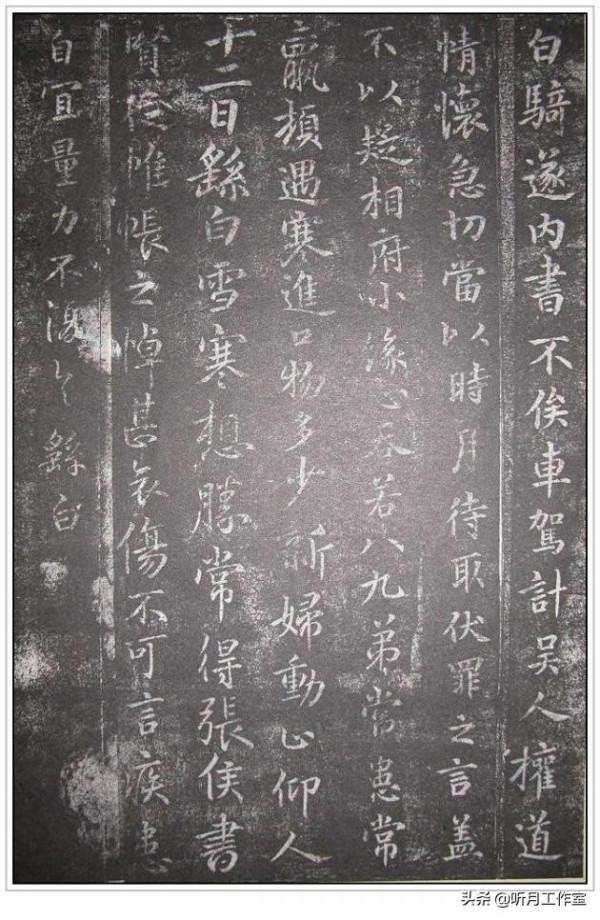 白騎遂内書不俟車駕計吴人權道
情懷急切當以時月待取伏罪之言盖
不以疑相府小缘心吝若八九弟常患常
羸頓遇寒進口物多少新婦動止仰人
十二日繇白雪寒想勝常得張侯書
賢從帷帳之悼甚哀傷不可言疾患
自宜量力不復々繇白
头条 @听月工作室